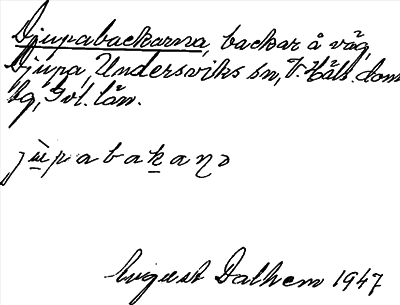 Djupabackarna, backar å väg,
Djupa, Undersviks sn, V. Häls. doms
bg, Gvl. län.
jùpabakaṇɔ
August Dalhem 1947